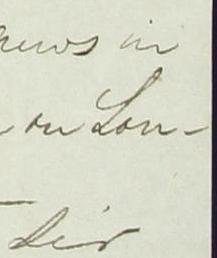 news in
on Lon-
Sir